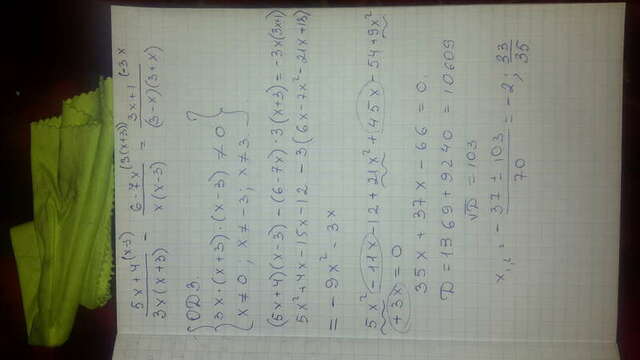 5x+4^(x-3) / 3x(x+3) - 6-7x^(3(x+3)) / x(x-3) = 3x+1 (-3x / (3-x)(3+x)
ОДЗ.
3x·(x+3)·(x-3) ≠ 0
x≠0; x≠-3; x≠3
(5x+4)(x-3) - (6-7x)·3(x+3) = -3x(3x+1)
5x²+4x-15x-12 - 3(6x-7x²-21x+18)
= -9x²-3x
5x²-11x-12+21x²+45x-54+9x²
+3x=0
35x+37x-66=0.
D=1369+9240=10609
√D=103
x₁,₂ = -37±103 / 70 = -2; 33/35